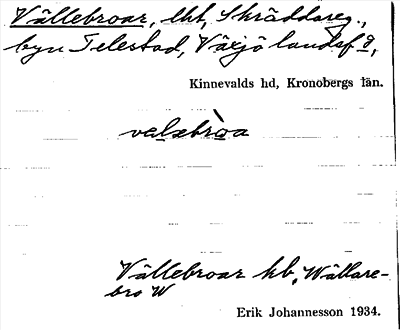 Vällebroar, lht, Skräddareg.,
byn Telestad, Växjö landsf
Kinnevalds hd, Kronobergs län.
Vällebroar hb, Wällare-
bro W
Erik Johannesson 1934.